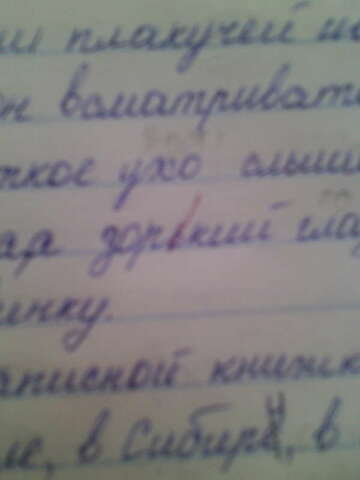 ши плакучей ив
он всматривате
ткое ухо слыши
а,а зорький гла
инку.
аписной книжк
ле, в Сибири, в